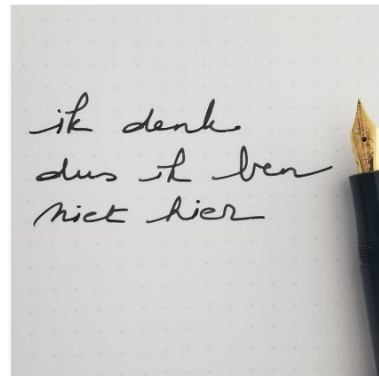 ik denk
dus ik ben
niet hier